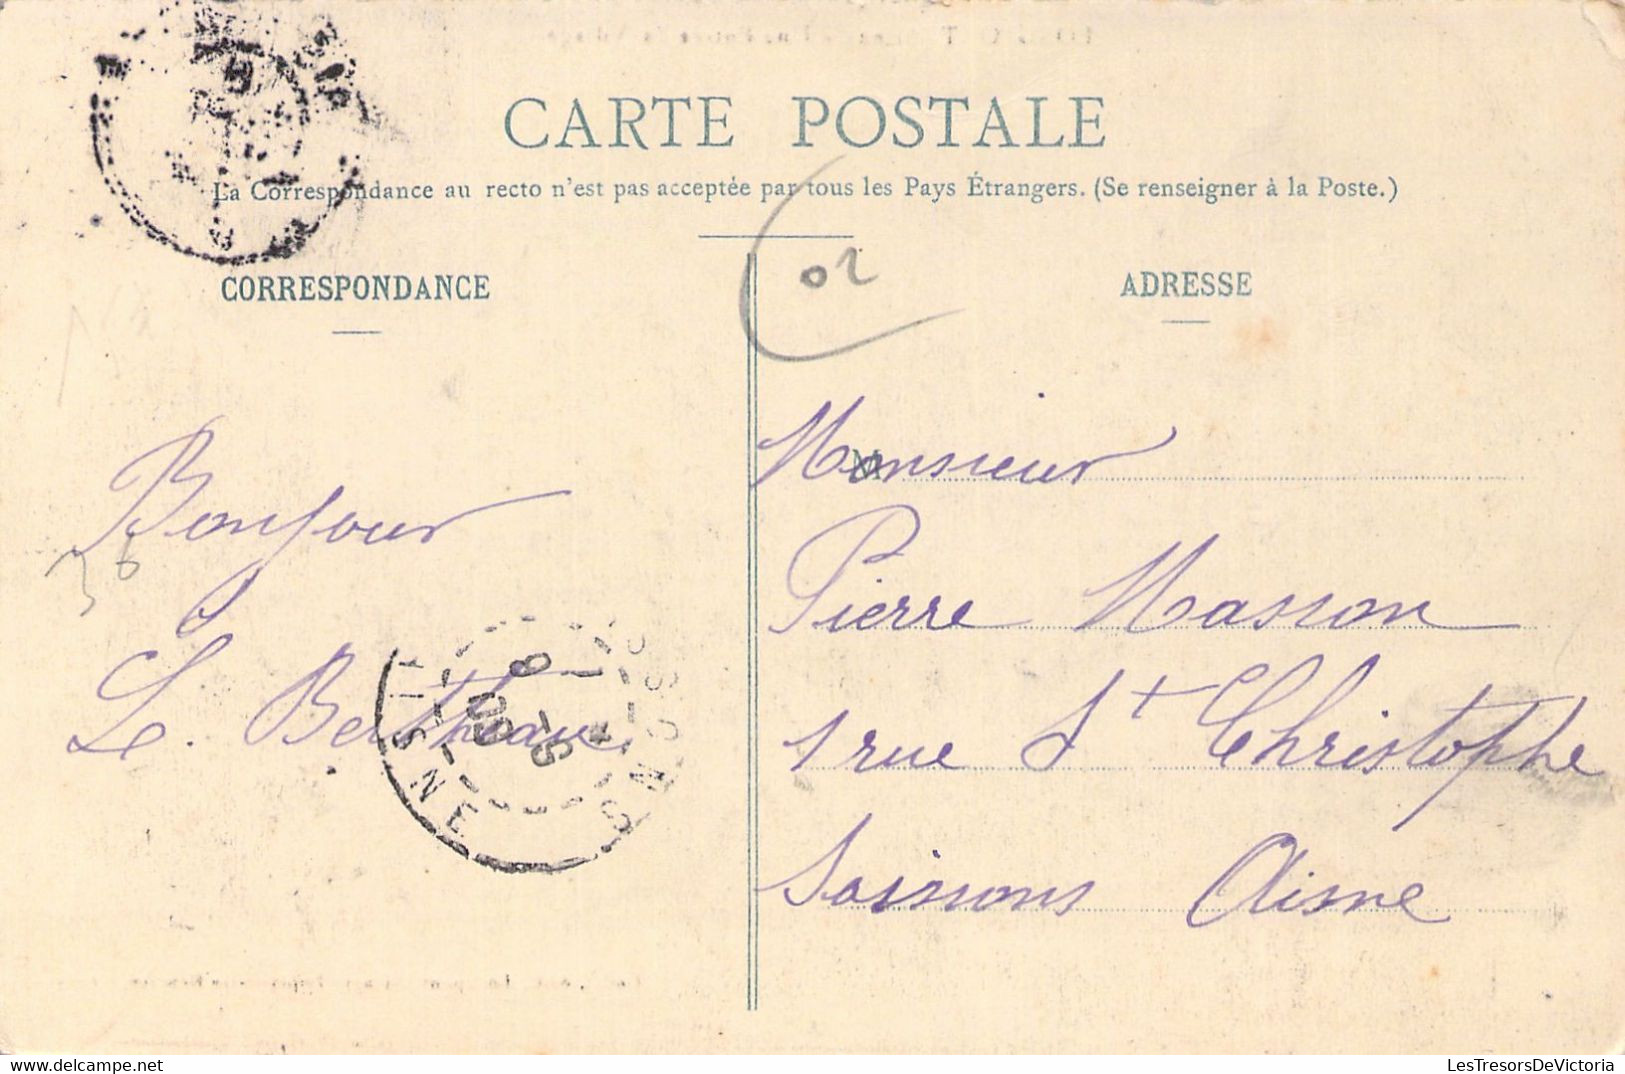 CARTE POSTALE
La Correspondance au recto n'est pas acceptée par tous les Pays Étrangers. (Se renseigner à la Poste.)
CORRESPONDANCE
ADRESSE
02
Bonjour
L. Bertheau
36
Monsieur
Pierre Masson
1 rue St Christophe
Soissons Aisne
SOISSONS
AISNE
delcampe.net
LesTresorsDeVictoria